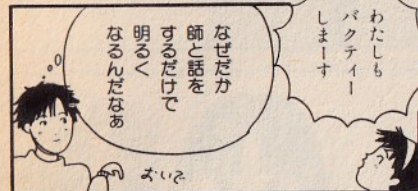 わたしも
バクティー
しまーす
なぜだか
師と話を
するだけで
明るく
なるんだなぁ
おいで